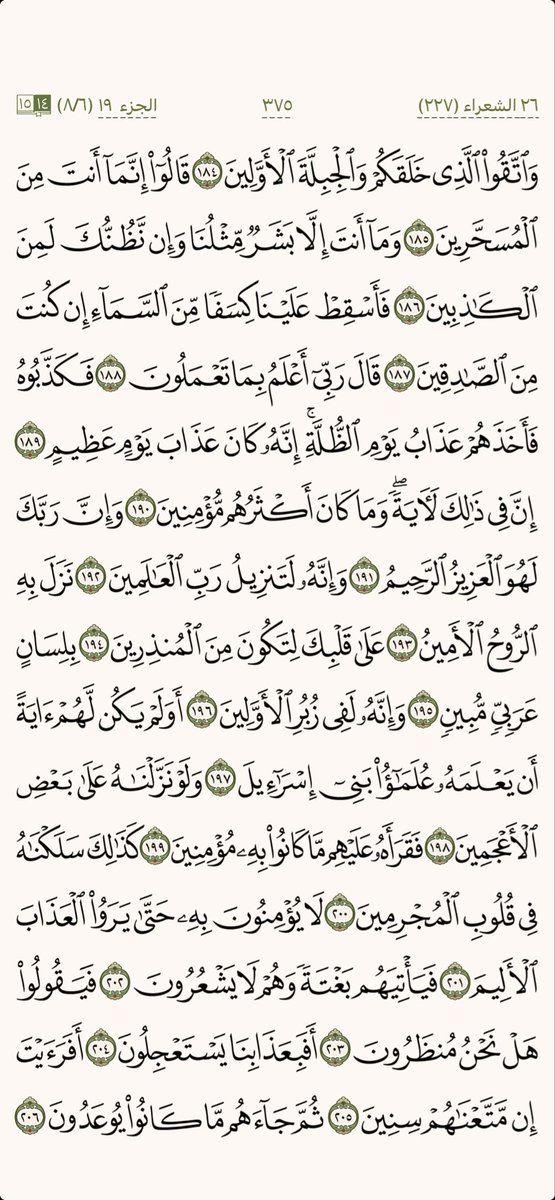 ٢٦ الشعراء (٢٢٧) ٣٧٥ الجزء ١٩ (٨/٦) ١٤ ١٥
وَٱتَّقُوا۟ ٱلَّذِى خَلَقَكُمْ وَٱلْجِبِلَّةَ ٱلْأَوَّلِينَ ١٨٤ قَالُوٓا۟ إِنَّمَآ أَنتَ مِنَ
ٱلْمُسَحَّرِينَ ١٨٥ وَمَآ أَنتَ إِلَّا بَشَرٌ مِّثْلُنَا وَإِن نَّظُنُّكَ لَمِنَ
ٱلْكَـٰذِبِينَ ١٨٦ فَأَسْقِطْ عَلَيْنَا كِسَفًا مِّنَ ٱلسَّمَآءِ إِن كُنتَ
مِنَ ٱلصَّـٰدِقِينَ ١٨٧ قَالَ رَبِّىٓ أَعْلَمُ بِمَا تَعْمَلُونَ ١٨٨ فَكَذَّبُوهُ
فَأَخَذَهُمْ عَذَابُ يَوْمِ ٱلظُّلَّةِ ۚ إِنَّهُۥ كَانَ عَذَابَ يَوْمٍ عَظِيمٍ ١٨٩
إِنَّ فِى ذَٰلِكَ لَـَٔايَةً ۖ وَمَا كَانَ أَكْثَرُهُم مُّؤْمِنِينَ ١٩٠ وَإِنَّ رَبَّكَ
لَهُوَ ٱلْعَزِيزُ ٱلرَّحِيمُ ١٩١ وَإِنَّهُۥ لَتَنزِيلُ رَبِّ ٱلْعَـٰلَمِينَ ١٩٢ نَزَلَ بِهِ
ٱلرُّوحُ ٱلْأَمِينُ ١٩٣ عَلَىٰ قَلْبِكَ لِتَكُونَ مِنَ ٱلْمُنذِرِينَ ١٩٤ بِلِسَانٍ
عَرَبِىٍّ مُّبِينٍ ١٩٥ وَإِنَّهُۥ لَفِى زُبُرِ ٱلْأَوَّلِينَ ١٩٦ أَوَلَمْ يَكُن لَّهُمْ ءَايَةً
أَن يَعْلَمَهُۥ عُلَمَـٰٓؤُا۟ بَنِىٓ إِسْرَٰٓءِيلَ ١٩٧ وَلَوْ نَزَّلْنَـٰهُ عَلَىٰ بَعْضِ
ٱلْأَعْجَمِينَ ١٩٨ فَقَرَأَهُۥ عَلَيْهِم مَّا كَانُوا۟ بِهِۦ مُؤْمِنِينَ ١٩٩ كَذَٰلِكَ سَلَكْنَـٰهُ
فِى قُلُوبِ ٱلْمُجْرِمِينَ ٢٠٠ لَا يُؤْمِنُونَ بِهِۦ حَتَّىٰ يَرَوُا۟ ٱلْعَذَابَ
ٱلْأَلِيمَ ٢٠١ فَيَأْتِيَهُم بَغْتَةً وَهُمْ لَا يَشْعُرُونَ ٢٠٢ فَيَقُولُوا۟
هَلْ نَحْنُ مُنظَرُونَ ٢٠٣ أَفَبِعَذَابِنَا يَسْتَعْجِلُونَ ٢٠٤ أَفَرَءَيْتَ
إِن مَّتَّعْنَـٰهُمْ سِنِينَ ٢٠٥ ثُمَّ جَآءَهُم مَّا كَانُوا۟ يُوعَدُونَ ٢٠٦